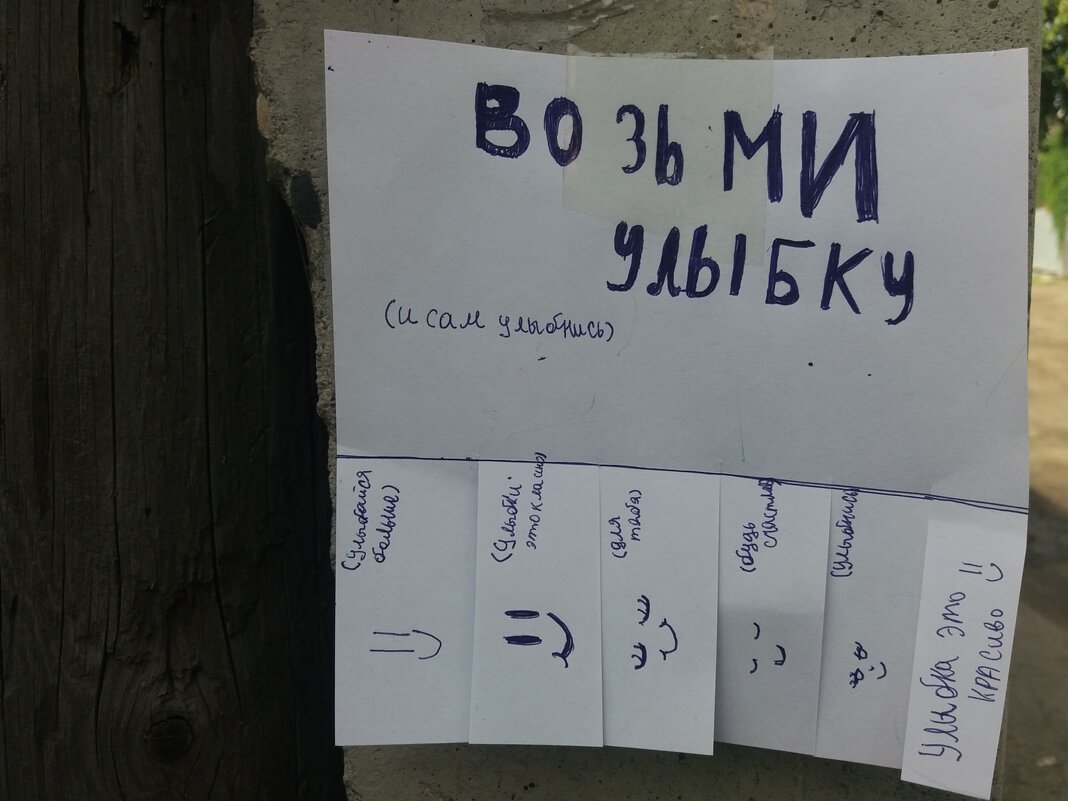 ВОЗЬМИ
УЛЫБКУ
(и сам улыбнись)
(улыбайся
больше)
(улыбки
это классно)
(для
тебя)
(будь
счастлив)
(улыбнись)
Улыбка это
КРАСИВО